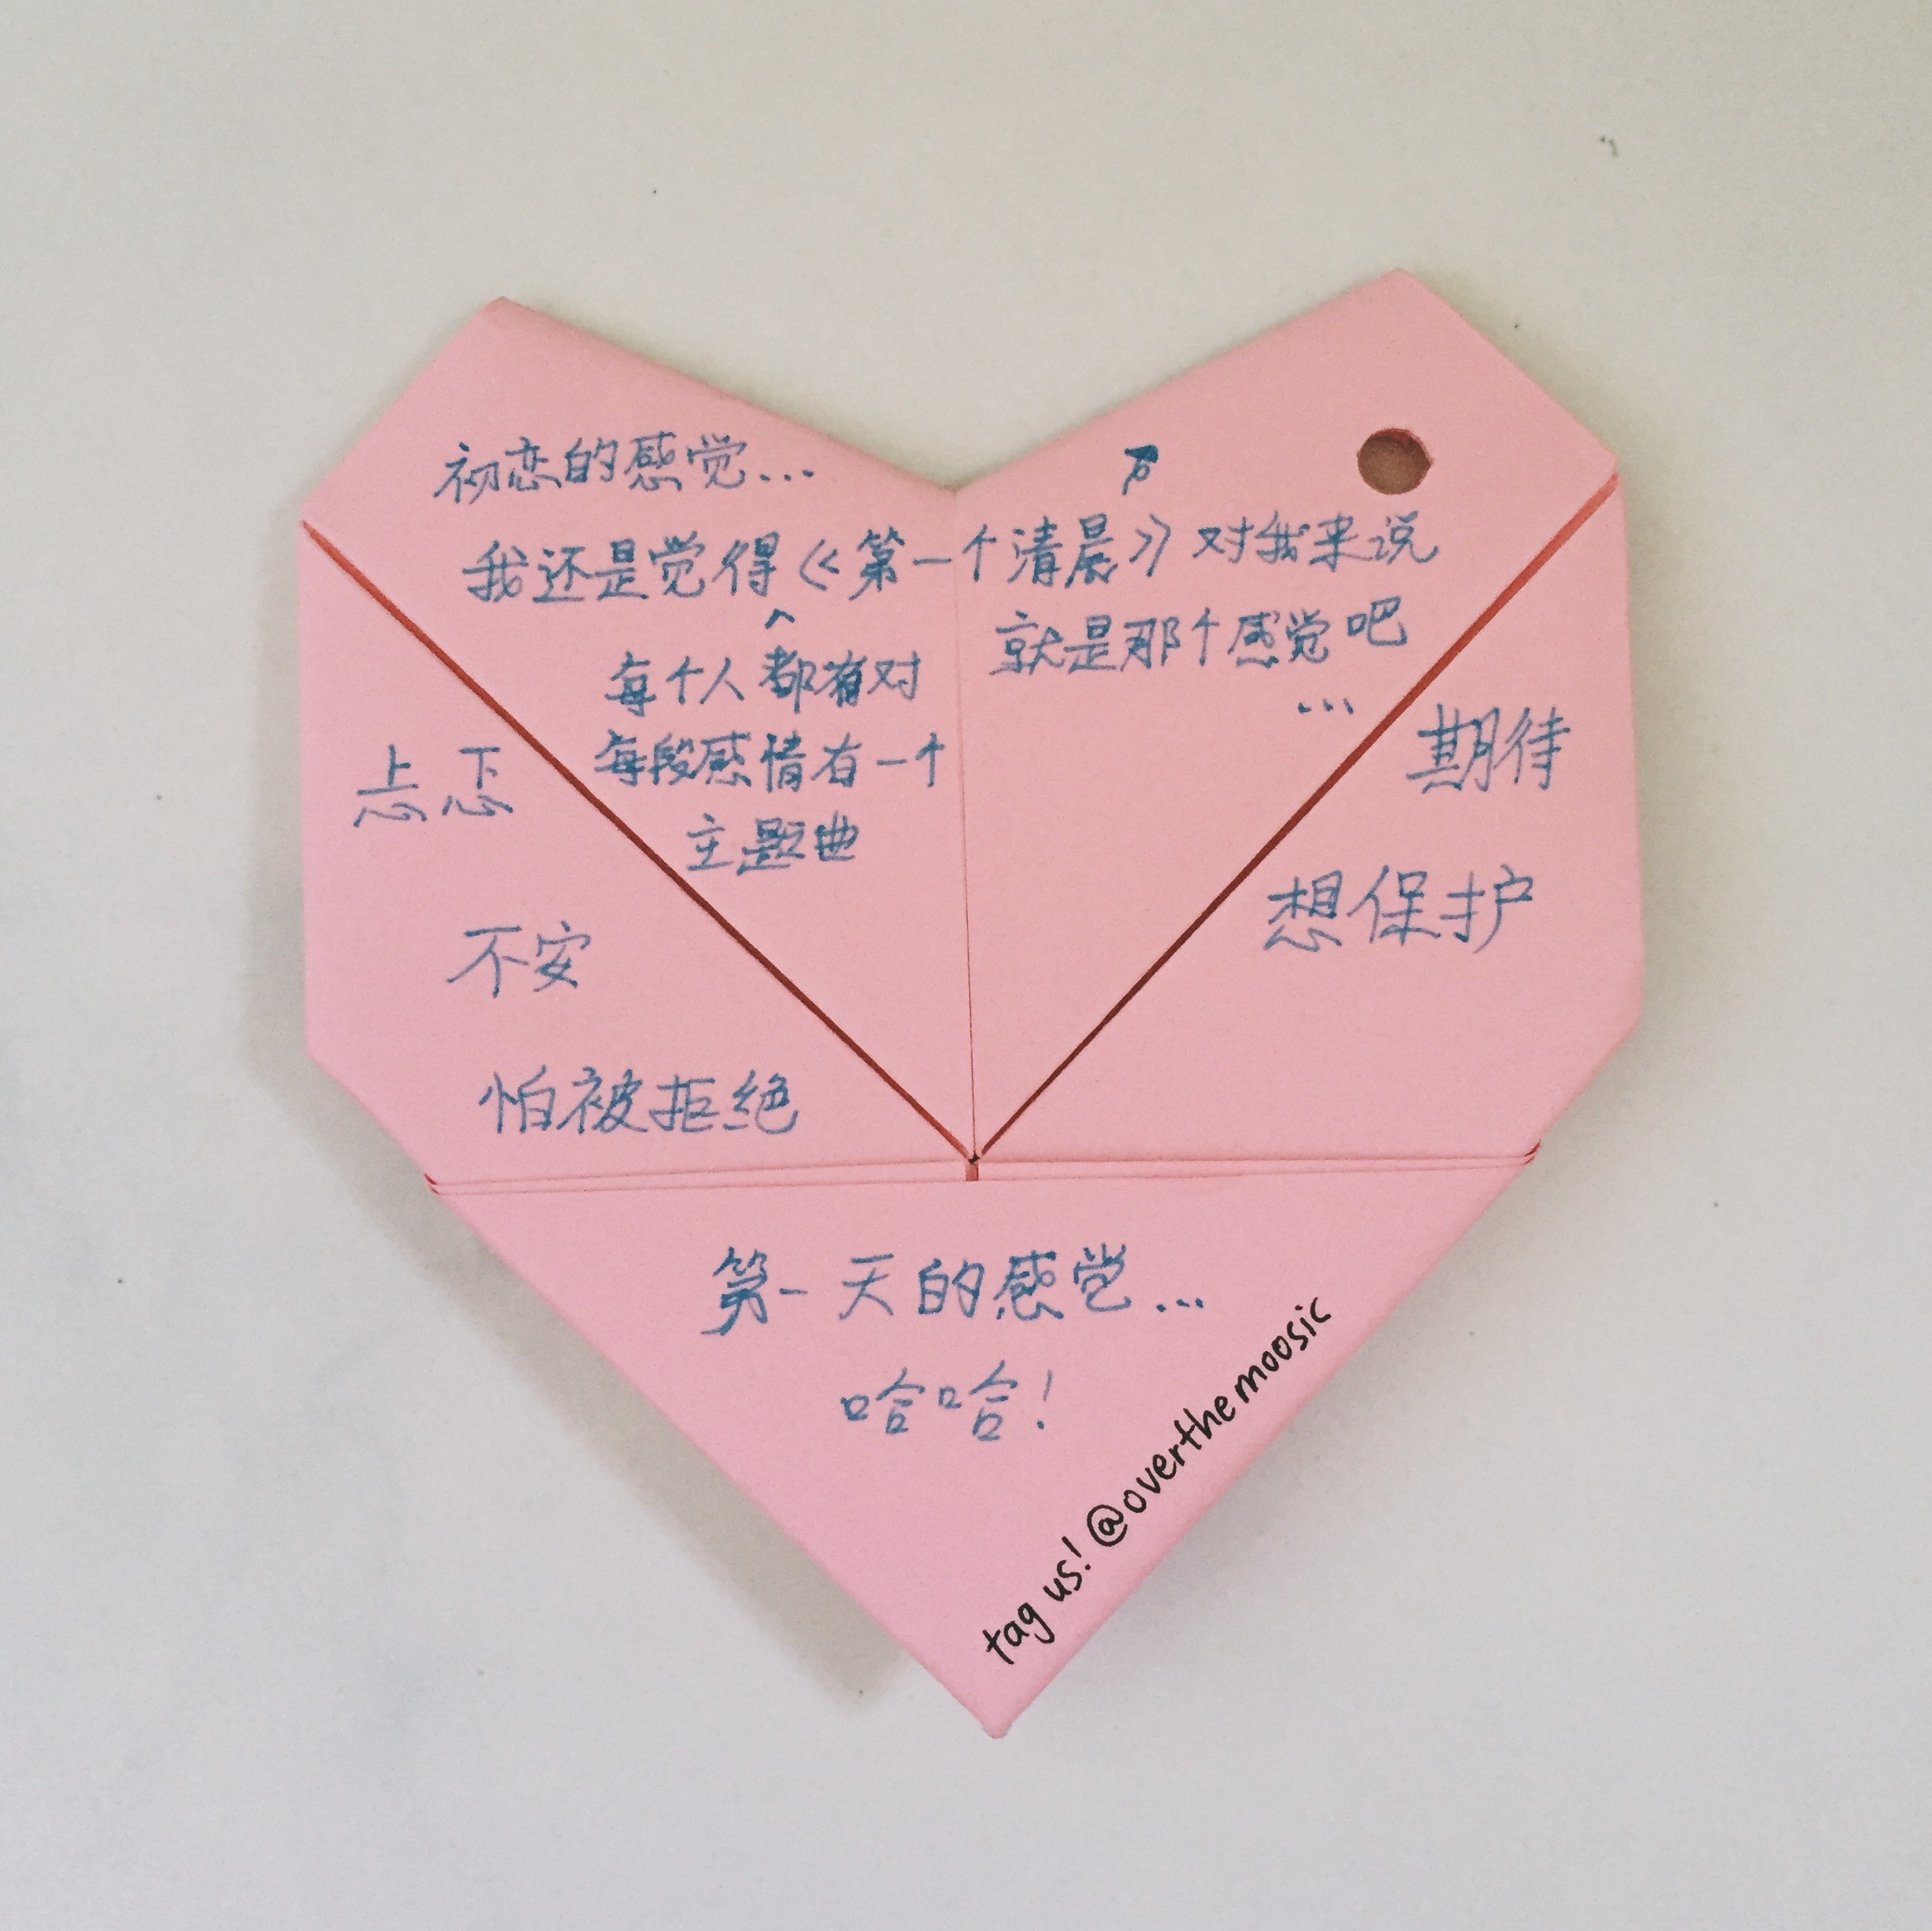 初恋的感觉...
我还是觉得《第一个清晨》对我来说
就是那个感觉吧
...
^
每个人都有对
每段感情有一个
主题曲
忐忑
不安
怕被拒绝
期待
想保护
第一天的感觉...
哈哈!
tag us! @overthemoosic